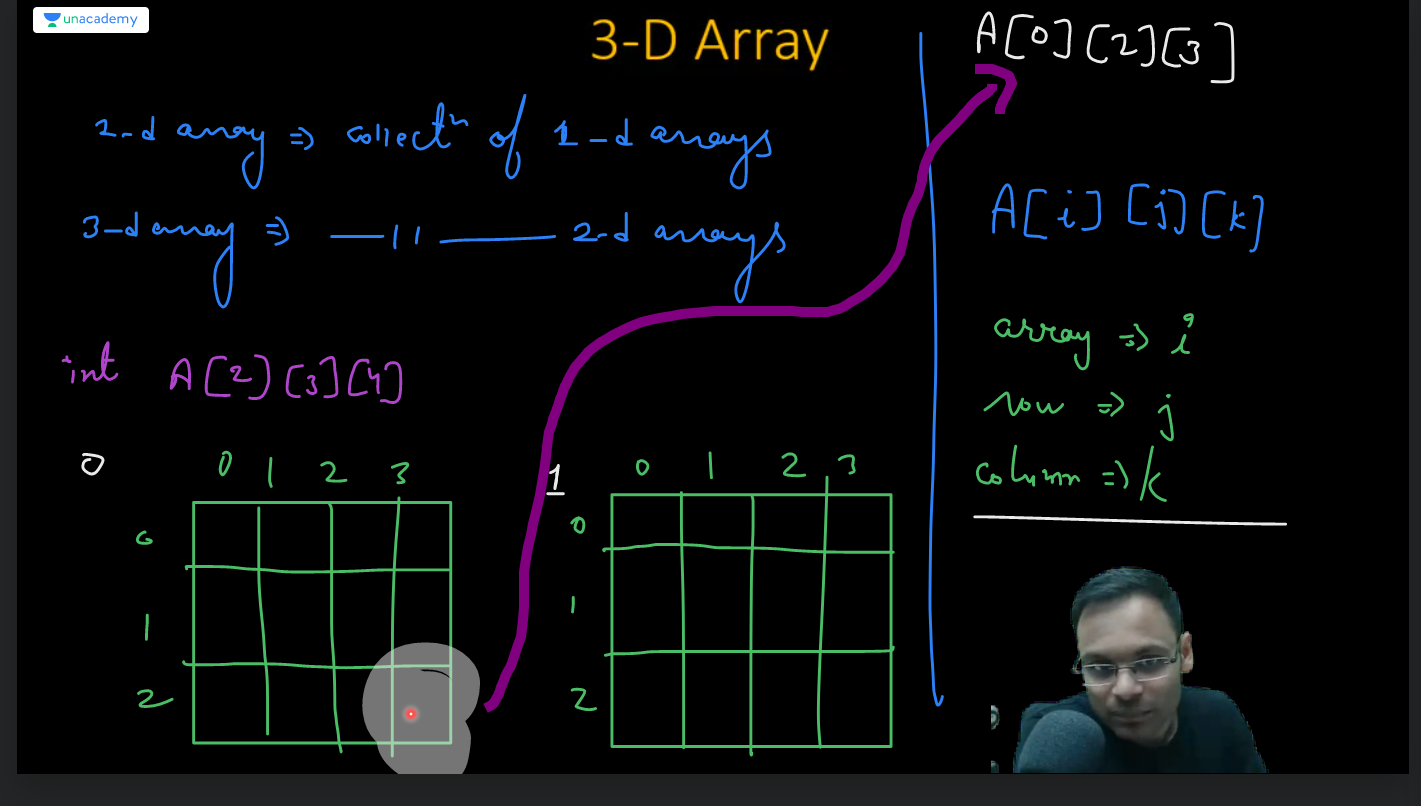 unacademy
3-D Array
2-d array ⇒ collectⁿ of 1-d arrays
3-d array ⇒ —11— 2-d arrays
int A[2][3][4]
0
0 1 2 3
0
1
2
1
0 1 2 3
0
1
2
A[0][2][3]
A[i][j][k]
array ⇒ i
row ⇒ j
column ⇒ k